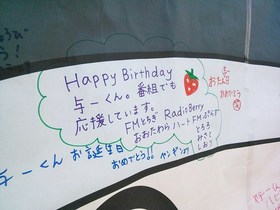 Happy Birthday
与一くん。番組でも
応援しています。
FMとちぎ RadioBerry
おおたわら ハートFM
とろろ
みさと
しおり
お誕生日
おめでとう
与一くん お誕生日
おめでとう。